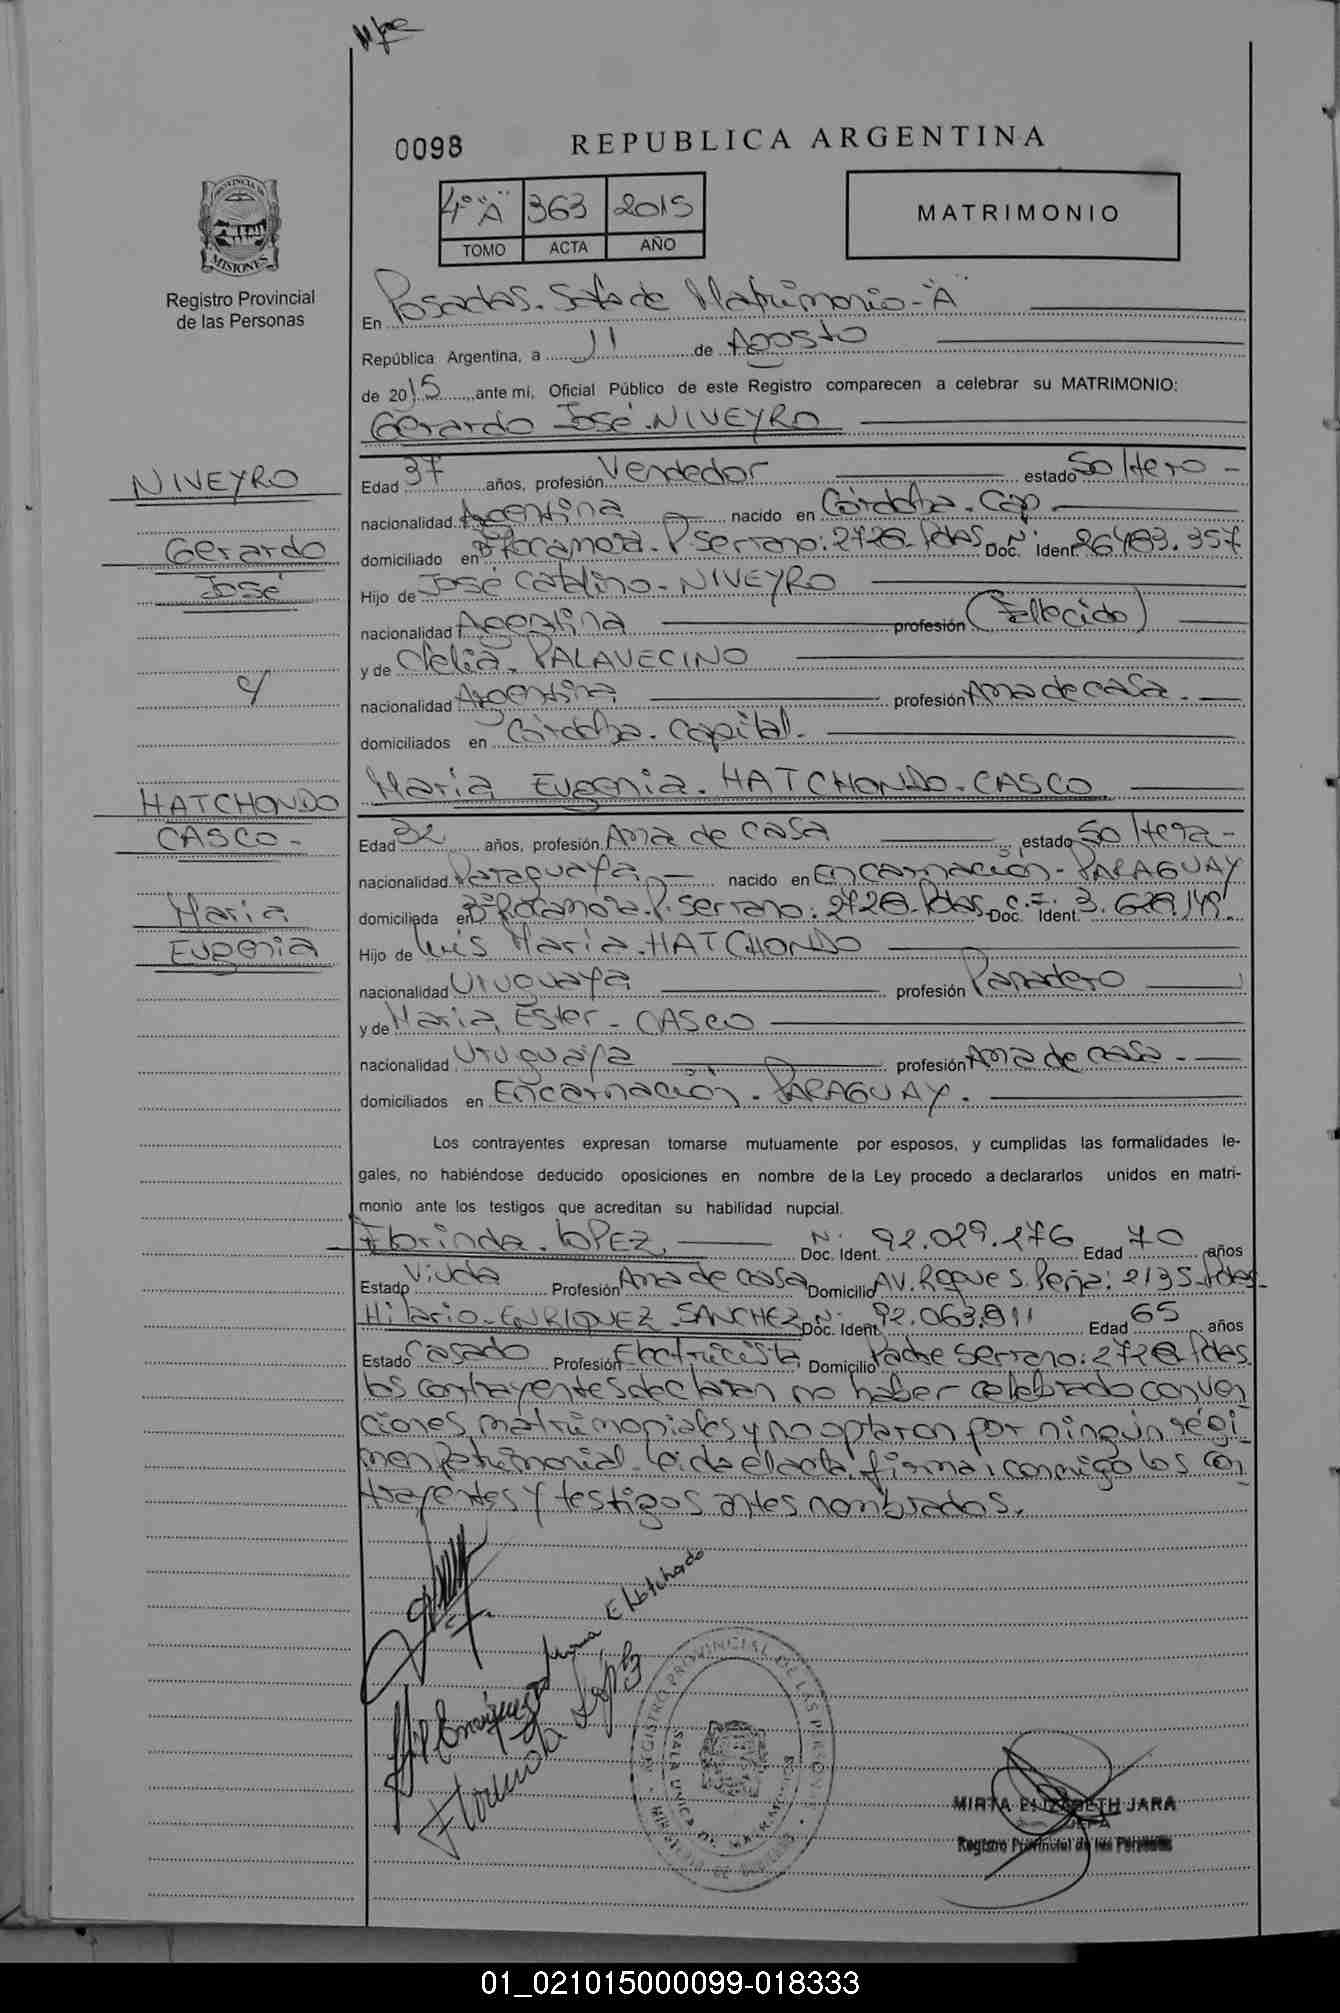 0098
REPUBLICA ARGENTINA
PROVINCIA DE
MISIONES
4º "A" 363 2015
TOMO ACTA AÑO
MATRIMONIO
Registro Provincial
de las Personas
En Posadas. Sala de Matrimonio-"A"
República Argentina, a 11 de Agosto
de 2015, ante mi, Oficial Público de este Registro comparecen a celebrar su MATRIMONIO:
Gerardo José.NIVEYRO
NIVEYRO
Gerardo
José
c/
Edad 37 años, profesión Vendedor estado Soltero -
nacionalidad Argentina nacido en Córdoba. Cap.
domiciliado en Bº Rocamora. P Serrano: 2728- Pdas Doc. Nº Ident 26.483.357
Hijo de José Catalino- NIVEYRO
nacionalidad Argentina profesión (Fallecido)
y de Clelia. PALAVECINO
nacionalidad Argentina profesión Ama de casa.
domiciliados en Córdoba. Capital.
Maria Eugenia. HATCHONDO-CASCO
HATCHONDO
CASCO-
Maria
Eugenia
Edad 32 años, profesión Ama de casa estado Soltera-
nacionalidad Paraguaya nacido en Encarnación- PARAGUAY
domiciliada en Bº Rocamora. P. Serrano: 2728- Pdas Doc. C.I. Ident 3.628.149.
Hijo de Luis Maria.HATCHONDO
nacionalidad Uruguaya profesión Panadero
y de Maria Ester- CASCO
nacionalidad Uruguaya profesión Ama de casa.
domiciliados en Encarnación. PARAGUAY.
Los contrayentes expresan tomarse mutuamente por esposos, y cumplidas las formalidades le-
gales, no habiéndose deducido oposiciones en nombre de la Ley procedo a declararlos unidos en matri-
monio ante los testigos que acreditan su habilidad nupcial.
Florinda. LOPEZ. Nº Doc. Ident. 92.029.276 Edad 70 años
Estado Viuda Profesión Ama de casa Domicilio AV. Roque S. Peña: 2135- Pdas-
Hilario-ENRIQUEZ SANCHEZ Nº Doc. Ident 92.063.911 Edad 65 años
Estado Casado Profesión Electricista Domicilio Padre Serrano: 2728 Pdas.
los contrayentes declaran no haber celebrado conven
ciones matrimoniales y no optaron por ningún régi-
men patrimonial. Leida el acta, firman conmigo los con
trayentes y testigos antes nombrados.
Maria E Hatchondo
Hil Enriquez
Florinda Lopez
REGISTRO PROVINCIAL DE LAS PERSONAS
SALA UNICA DE MATRIMONIOS
MIRTA ELIZABETH JARA
JEFA
Registro Provincial de las Personas
01_021015000099-018333